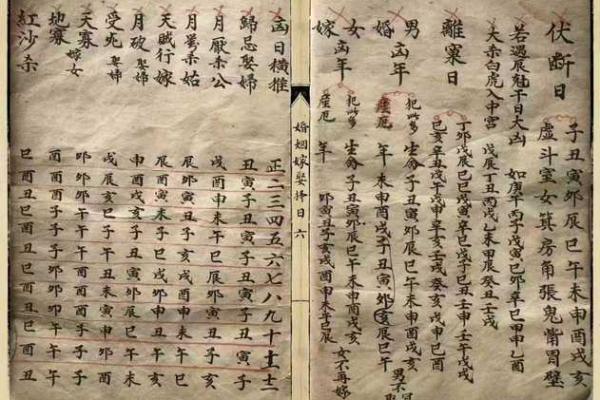 伏斷日
子丑寅卯辰巳午未申酉戌亥
虛斗室女箕房角張鬼觜胃壁
若遇辰尅干日大凶 如庚午丙子戊寅己卯辛巳甲申乙酉
大杀白虎入中宮 戊辰丁丑丙戌乙未甲辰癸丑壬戌
離窠日
丁卯戊辰己巳戊寅辛巳戊子己丑壬申壬午戊戌
男凶年 犯此多 生命子丑寅卯辰巳午未申酉戌亥
婚 產厄 年 未申酉戌亥子丑寅卯辰巳午 男不
女凶年 犯此多 生命子丑寅卯辰巳午未申酉戌亥
嫁 產厄 年 卯寅丑子亥戌酉申未午巳辰 女不再嫁
婚姻嫁娶擇日 六
凶日橫推 正二三四五六七八九十十一十二
歸忌娶婦 丑寅子丑寅子丑寅子丑寅子
月厭杀公 戌酉申未午巳辰卯寅丑子亥
杀姑 辰卯寅丑子亥戌酉申未午巳
天賊行嫁 辰酉寅未子巳戌卯申丑午亥
月破娶婦 申酉戌亥子丑寅卯辰巳午未
受死娶婦 戌辰亥巳子午丑未寅申卯酉
天寡嫁女 卯卯卯午午午酉酉酉子子子
地寡 酉酉酉子子子卯卯卯午午午
紅沙杀 巳酉丑巳酉丑巳酉丑巳酉丑